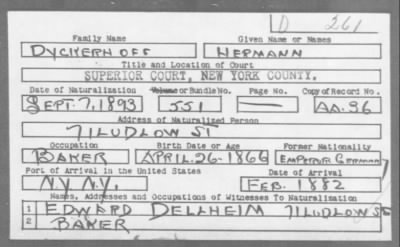 D 261
Family Name Given Name or Names
DYCKERHOFF HERMANN
Title and Location of Court
SUPERIOR COURT, NEW YORK COUNTY.
Date of Naturalization Volume or Bundle No. Page No. Copy of Record No.
SEPT. 7, 1893 551 AA. 96
Address of Naturalized Person
71 LUDLOW ST
Occupation Birth Date or Age Former Nationality
BAKER APRIL. 26-1866 EMPEROR GERMANY
Port of Arrival in the United States Date of Arrival
N.Y. N.Y. FEB. 1882
Names, Addresses and Occupations of Witnesses To Naturalization
1 EDWARD DELLHEIM 71 LUDLOW ST
2 BAKER